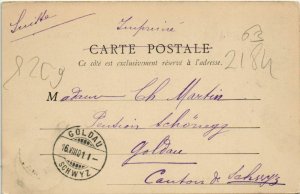 Suisse
Imprimé
CARTE POSTALE
Ce côté est exclusivement réservé à l'adresse.
M adame Ch. Martin
Pension Schönegg
Goldau
Canton de Schwyz
GOLDAU
16.VIII.01.11-
SCHWYZ